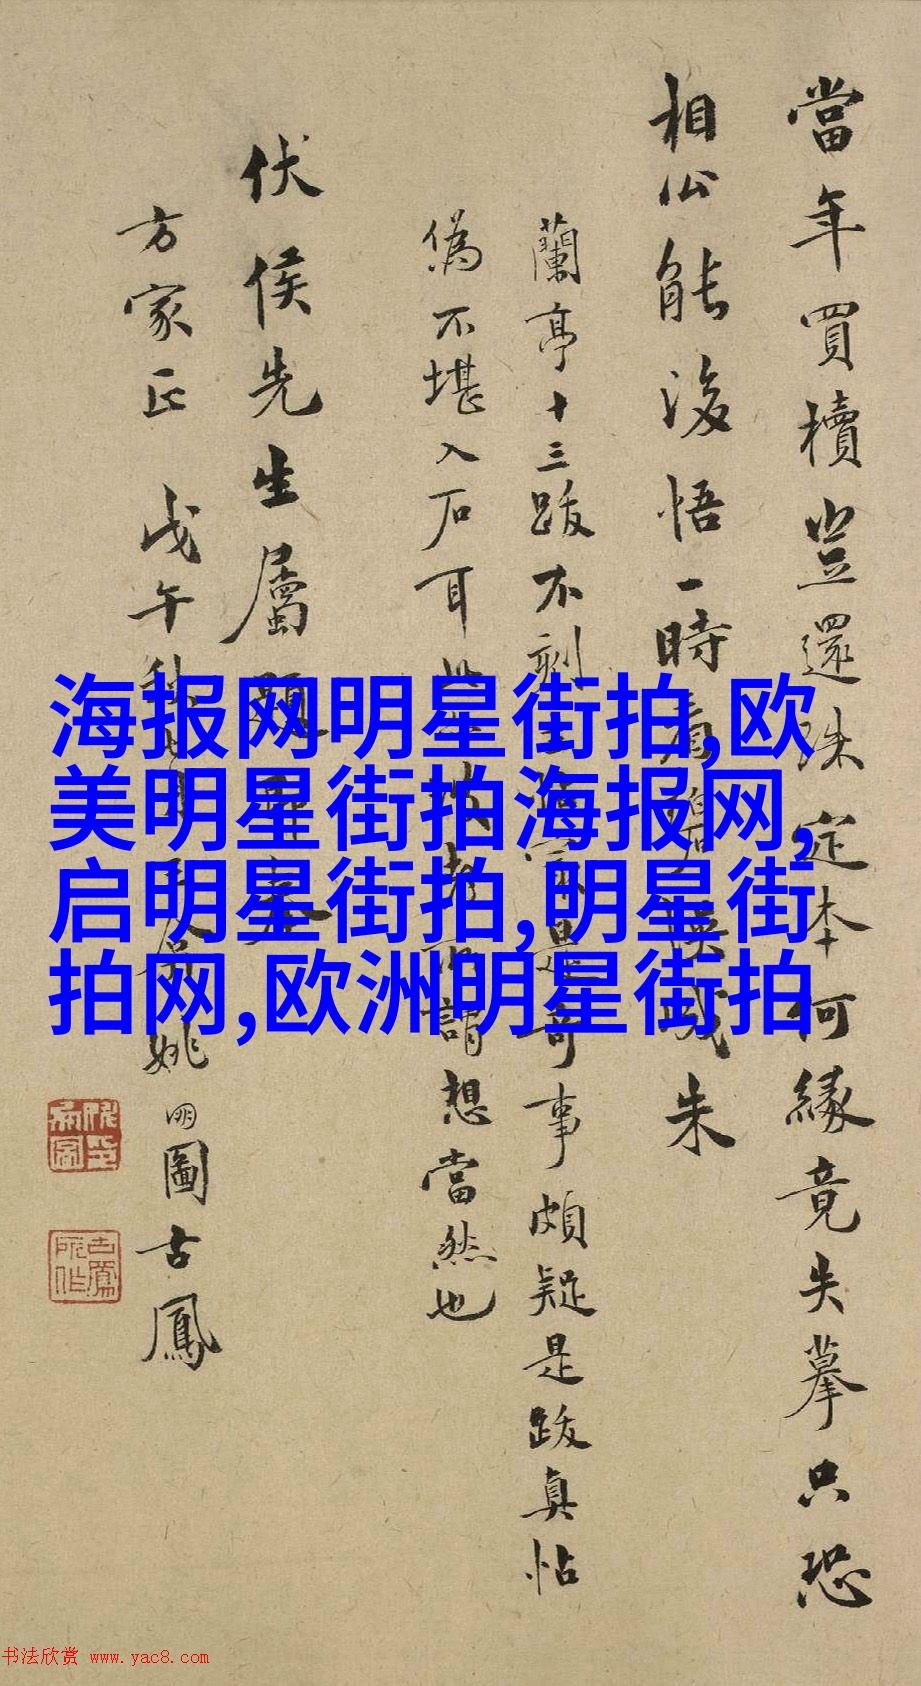 當年買櫝豈還珠定本何緣竟失摹只恐
相公能浚悟一時看碧誤成朱
蘭亭十三跋不刻是奇事頗疑是跋真帖
偽不堪入石耳坡老所謂想當然也
伏侯先生屬題即奉
方家正 戊午秋姚圖古鳳
海报网明星街拍,欧
美明星街拍海报网,
启明星街拍,明星街
拍网,欧洲明星街拍
书法欣赏 www.yac8.com